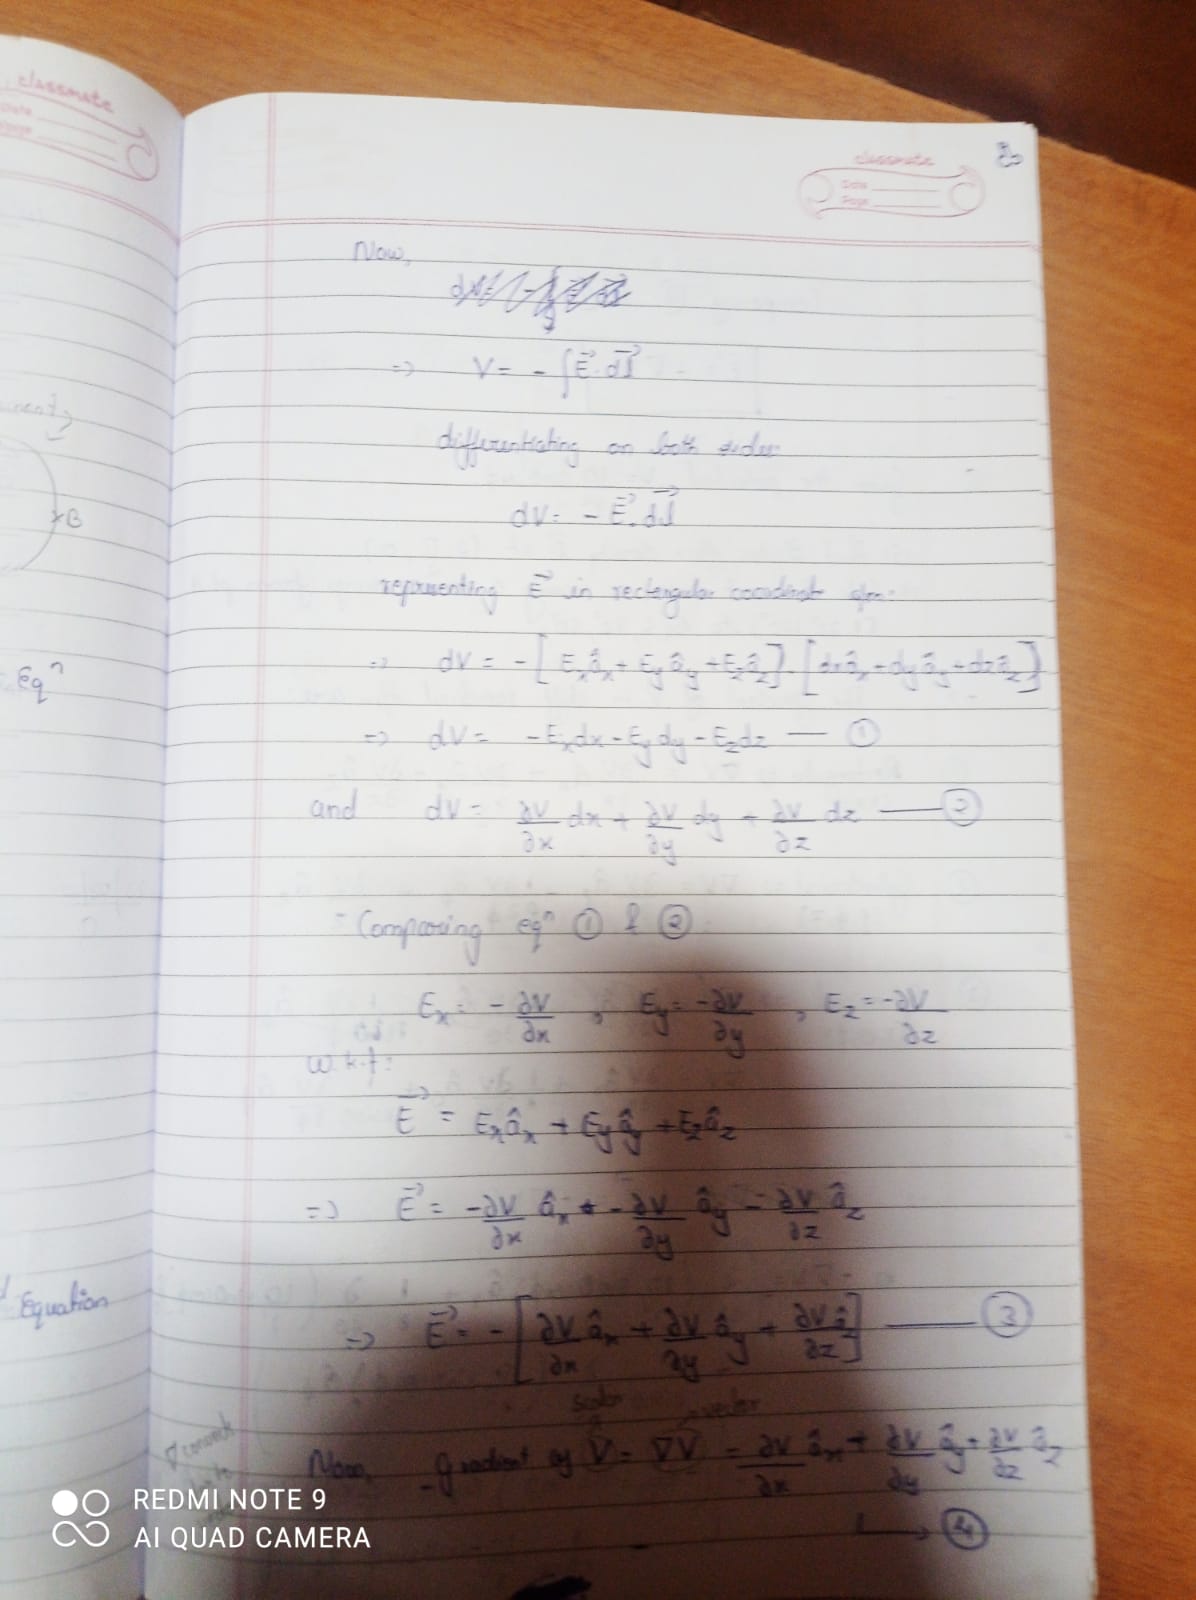 classmate
Date
Page
classmate
Date
Page
Now,
⇒ V = - ∫ E⃗ . dl⃗
differentiating on both sides:
dV = - E⃗ . dl⃗
representing E⃗ in rectangular coordinate
⇒ dV = - [ Exâx + Eyây + Ezâz ] . [ dxâx + dyây + dzâz ]
⇒ dV = -Exdx - Eydy - Ezdz — ①
and dV = ∂V/∂x dx + ∂V/∂y dy + ∂V/∂z dz — ②
Comparing eqⁿ ① & ②
Ex = - ∂V/∂x , Ey = -∂V/∂y , Ez = -∂V/∂z
w.k.t:
E⃗ = Exâx + Eyây + Ezâz
⇒ E⃗ = -∂V/∂x âx - ∂V/∂y ây - ∂V/∂z âz
⇒ E⃗ = - [ ∂V/∂x âx + ∂V/∂y ây + ∂V/∂z âz ] — ③
scalar
vector
Now, Gradient of V = ∇V = ∂V/∂x âx + ∂V/∂y ây + ∂V/∂z âz
→ ④
∇ convert
B
Eqⁿ
Equation
REDMI NOTE 9
AI QUAD CAMERA